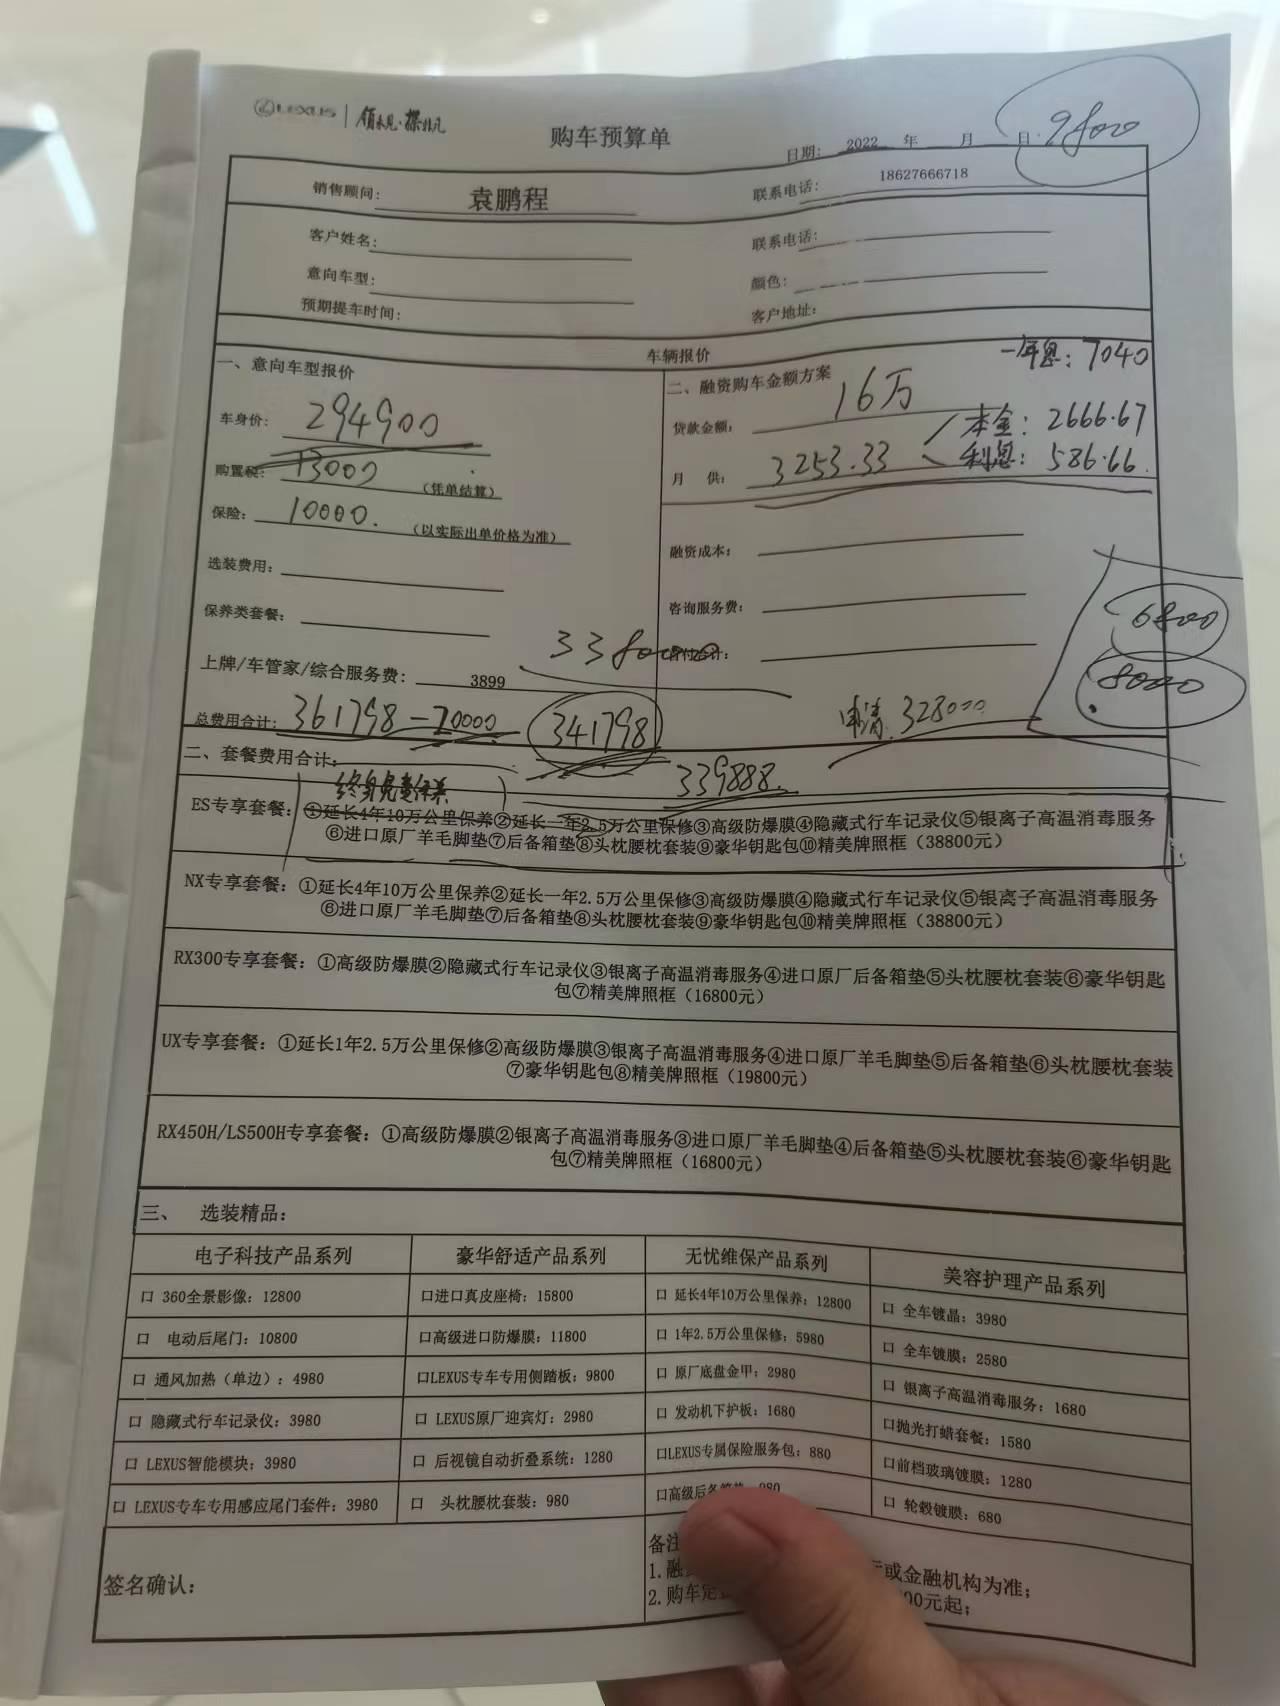 LEXUS | 领未见·探非凡
购车预算单
日期: 2022 年 月 日
9800
销售顾问: 袁鹏程 联系电话: 18627666718
客户姓名: 联系电话:
意向车型: 颜色:
预期提车时间: 客户地址:
车辆报价
一年息: 7040
一、意向车型报价
车身价: 294900
购置税: 13000 (凭单结算)
保险: 10000. (以实际出单价格为准)
选装费用:
保养类套餐:
上牌/车管家/综合服务费: 3899
总费用合计: 361798-20000 341798
二、融资购车金额方案
贷款金额: 16万
本金: 2666.67
月 供: 3253.33
利息: 586.66
融资成本:
咨询服务费:
6800
8000
申请 328000
二、套餐费用合计:
339888
终身免费保养
ES专享套餐: ①延长4年10万公里保养②延长一年2.5万公里保修③高级防爆膜④隐藏式行车记录仪⑤银离子高温消毒服务
⑥进口原厂羊毛脚垫⑦后备箱垫⑧头枕腰枕套装⑨豪华钥匙包⑩精美牌照框（38800元）
NX专享套餐: ①延长4年10万公里保养②延长一年2.5万公里保修③高级防爆膜④隐藏式行车记录仪⑤银离子高温消毒服务
⑥进口原厂羊毛脚垫⑦后备箱垫⑧头枕腰枕套装⑨豪华钥匙包⑩精美牌照框（38800元）
RX300专享套餐: ①高级防爆膜②隐藏式行车记录仪③银离子高温消毒服务④进口原厂后备箱垫⑤头枕腰枕套装⑥豪华钥匙
包⑦精美牌照框（16800元）
UX专享套餐: ①延长1年2.5万公里保修②高级防爆膜③银离子高温消毒服务④进口原厂羊毛脚垫⑤后备箱垫⑥头枕腰枕套装
⑦豪华钥匙包⑧精美牌照框（19800元）
RX450H/LS500H专享套餐: ①高级防爆膜②银离子高温消毒服务③进口原厂羊毛脚垫④后备箱垫⑤头枕腰枕套装⑥豪华钥匙
包⑦精美牌照框（16800元）
三、 选装精品:
电子科技产品系列 豪华舒适产品系列 无忧维保产品系列 美容护理产品系列
口 360全景影像: 12800 口进口真皮座椅: 15800 口 延长4年10万公里保养: 12800 口 全车镀晶: 3980
口 电动后尾门: 10800 口高级进口防爆膜: 11800 口 1年2.5万公里保修: 5980 口 全车镀膜: 2580
口 通风加热（单边）: 4980 口LEXUS专车专用侧踏板: 9800 口 原厂底盘金甲: 2980 口 银离子高温消毒服务: 1680
口 隐藏式行车记录仪: 3980 口 LEXUS原厂迎宾灯: 2980 口 发动机下护板: 1680 口抛光打蜡套餐: 1580
口 LEXUS智能模块: 3980 口 后视镜自动折叠系统: 1280 口LEXUS专属保险服务包: 880 口前档玻璃镀膜: 1280
口 LEXUS专车专用感应尾门套件: 3980 口 头枕腰枕套装: 980 口高级后备箱垫 口 轮毂镀膜: 680
签名确认:
备注
1.融 或金融机构为准;
2.购车定 00元起;